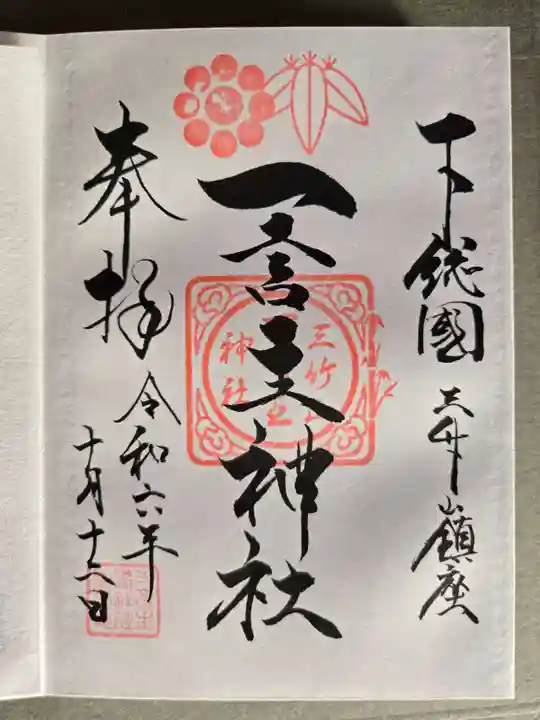 下総國 三竹山鎮座
一言主神社
奉拝
令和六年
十月十二日
三竹山
神社